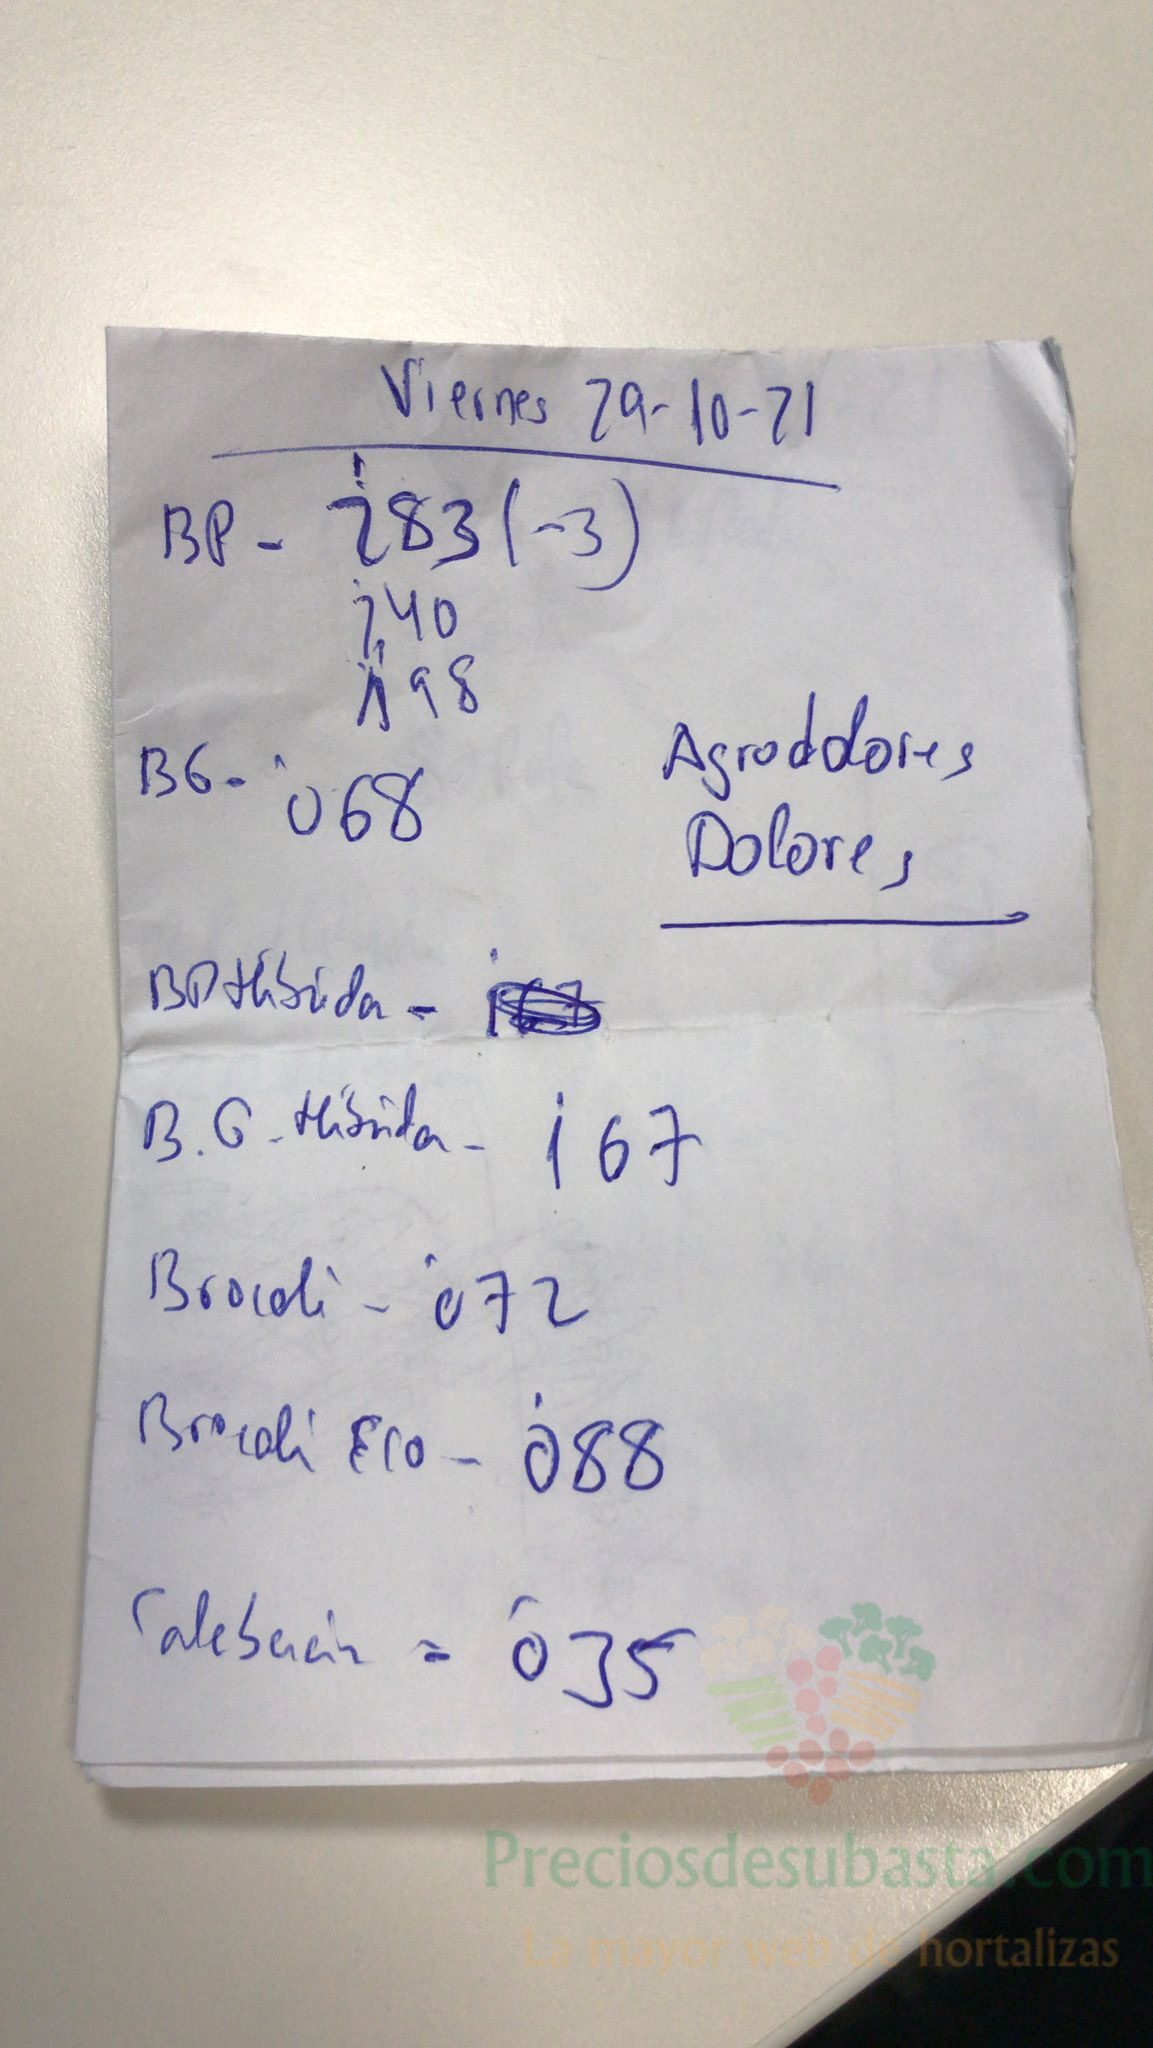 Viernes 29-10-21
BP - 2'83 (-3)
2'40
1'98
BG - 0'68
Agrodolores
Dolores
BP Híbrida -
B.G. Híbrida - 1'67
Brocoli - 0'72
Brocoli Eco - 0'88
Calabacin = 0'35
Preciosdesubasta.com
La mayor web de hortalizas